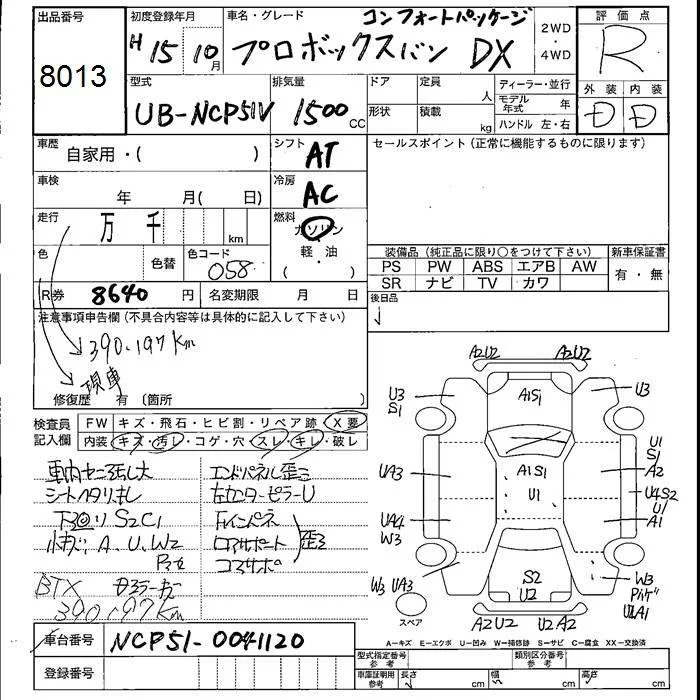 出品番号
8013
初度登録年月
H 15 年 10月
車名・グレード
コンフォートパッケージ
プロボックスバン DX
2WD
4WD
評価点
R
型式
UB-NCP51V
排気量
1500 cc
ドア
定員
人
形状
積載
kg
ディーラー・並行
モデル年式 年
ハンドル 左・右
外装 内装
D D
車歴
自家用・( )
シフト
AT
セールスポイント (正常に機能するものに限ります)
車検
年 月( 日)
冷房
AC
走行
万 千 km
燃料
ガソリン
・
軽・油
( ・ )
色
色替
色コード
058
装備品 (純正品に限り○をつけて下さい)
新車保証書
PS PW ABS エアB AW
SR ナビ TV カワ
有・無
R券 8640 円
名変期限 月 日
後日品
注意事項申告欄 (不具合内容等は具体的に記入して下さい)
390.197km
現車
修復歴 有 (箇所 )
検査員
記入欄
FW キズ・飛石・ヒビ割・リペア跡 X要
内装 キズ・汚レ・コゲ・穴・スレ・キレ・破レ
シートヘタリ
エンドパネル歪ミ
左センターピラーU
S2C1
A.U.W2
Fインパネ
ロアサポート
コアサポ
歪ミ
390197km
A2U2 A2U2
U3
S1
A1S1
U3
UA3
A1S1
U1
U1
S1
A2
U4S2
U1
A1
UA4
W3
W3 UA3
S2
U2
W3
スペア
A2U2 U2A2
A−キズ E−エクボ U−凹み W−補修跡 S−サビ C−腐食 XX−交換済
車台番号 NCP51-0041120
登録番号
型式指定番号
参考
類別区分番号
参考
車庫証明用
参考
長さ cm
幅 cm
高さ cm